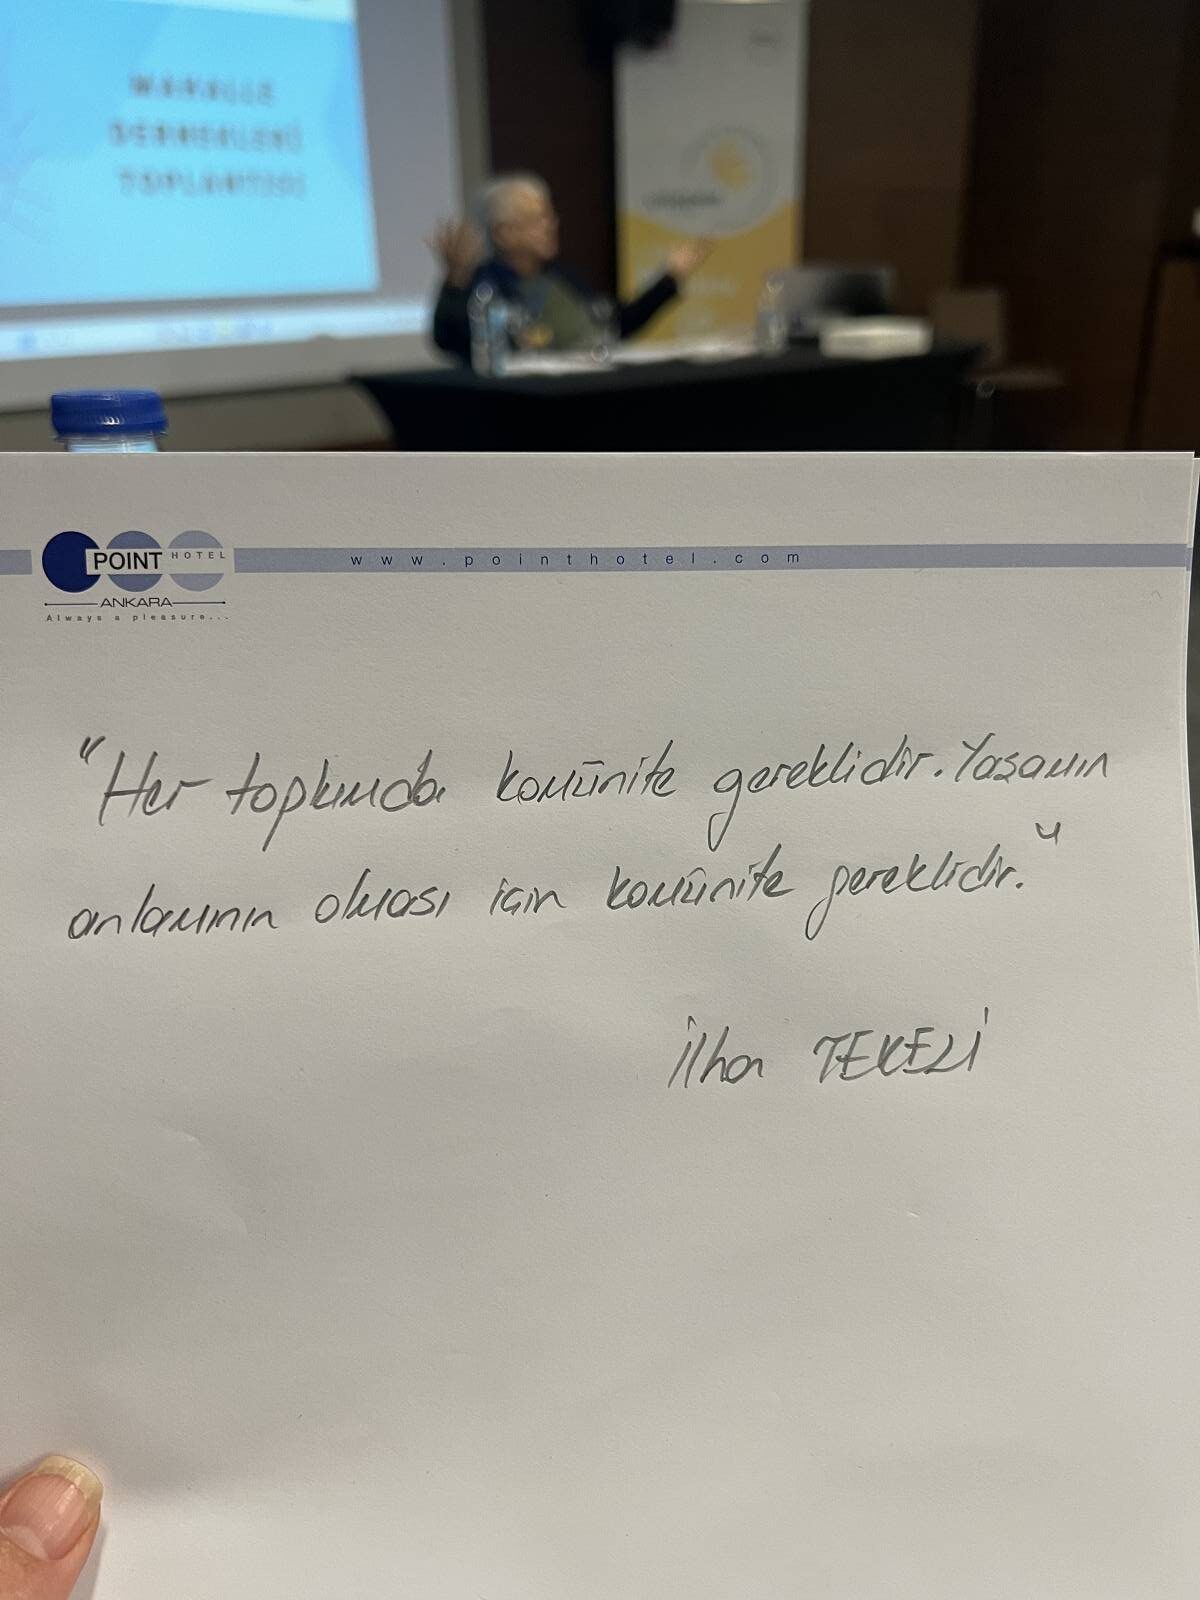 MAHALLE
DERNEKLERİ
TOPLANTISI
POINT HOTEL
www.pointhotel.com
ANKARA
Always a pleasure...
"Her toplumda komünite gereklidir. Yaşamın
anlamının olması için komünite gereklidir."
İlhan TEKELİ